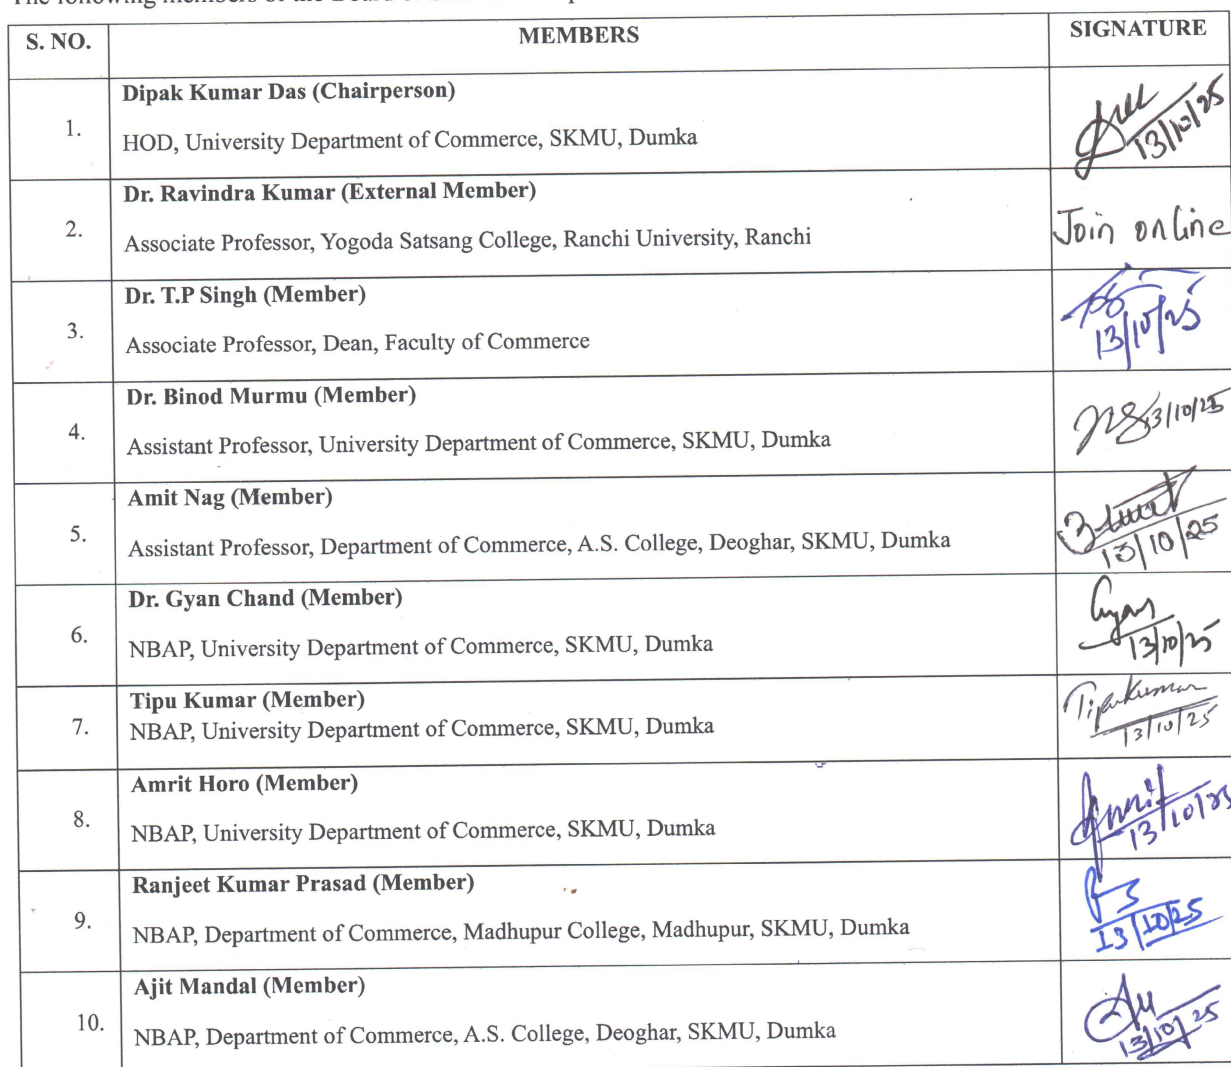 S. NO. MEMBERS SIGNATURE
Dipak Kumar Das (Chairperson)
1. HOD, University Department of Commerce, SKMU, Dumka
13/10/25
Dr. Ravindra Kumar (External Member)
2. Associate Professor, Yogoda Satsang College, Ranchi University, Ranchi
Join online
Dr. T.P Singh (Member)
3. Associate Professor, Dean, Faculty of Commerce
13/10/25
Dr. Binod Murmu (Member)
4. Assistant Professor, University Department of Commerce, SKMU, Dumka
13/10/25
Amit Nag (Member)
5. Assistant Professor, Department of Commerce, A.S. College, Deoghar, SKMU, Dumka
13/10/25
Dr. Gyan Chand (Member)
6. NBAP, University Department of Commerce, SKMU, Dumka
Gyan
13/10/25
Tipu Kumar (Member)
7. NBAP, University Department of Commerce, SKMU, Dumka
Tipu Kumar
13/10/25
Amrit Horo (Member)
8. NBAP, University Department of Commerce, SKMU, Dumka
Amrit
13/10/25
Ranjeet Kumar Prasad (Member)
9. NBAP, Department of Commerce, Madhupur College, Madhupur, SKMU, Dumka
13/10/25
Ajit Mandal (Member)
10. NBAP, Department of Commerce, A.S. College, Deoghar, SKMU, Dumka
13/10/25